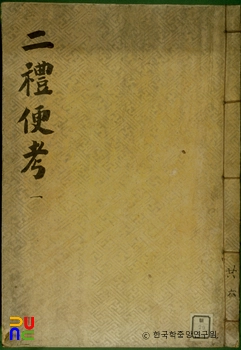 二禮便考
一
共六
© 한국학중앙연구원